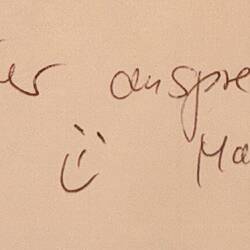 er anspre
Ma